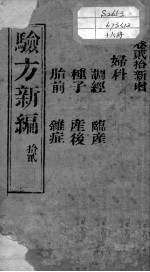 卷貳拾新增
婦科
調經 臨產
種子 產後
胎前 雜症
驗方新編
拾貳